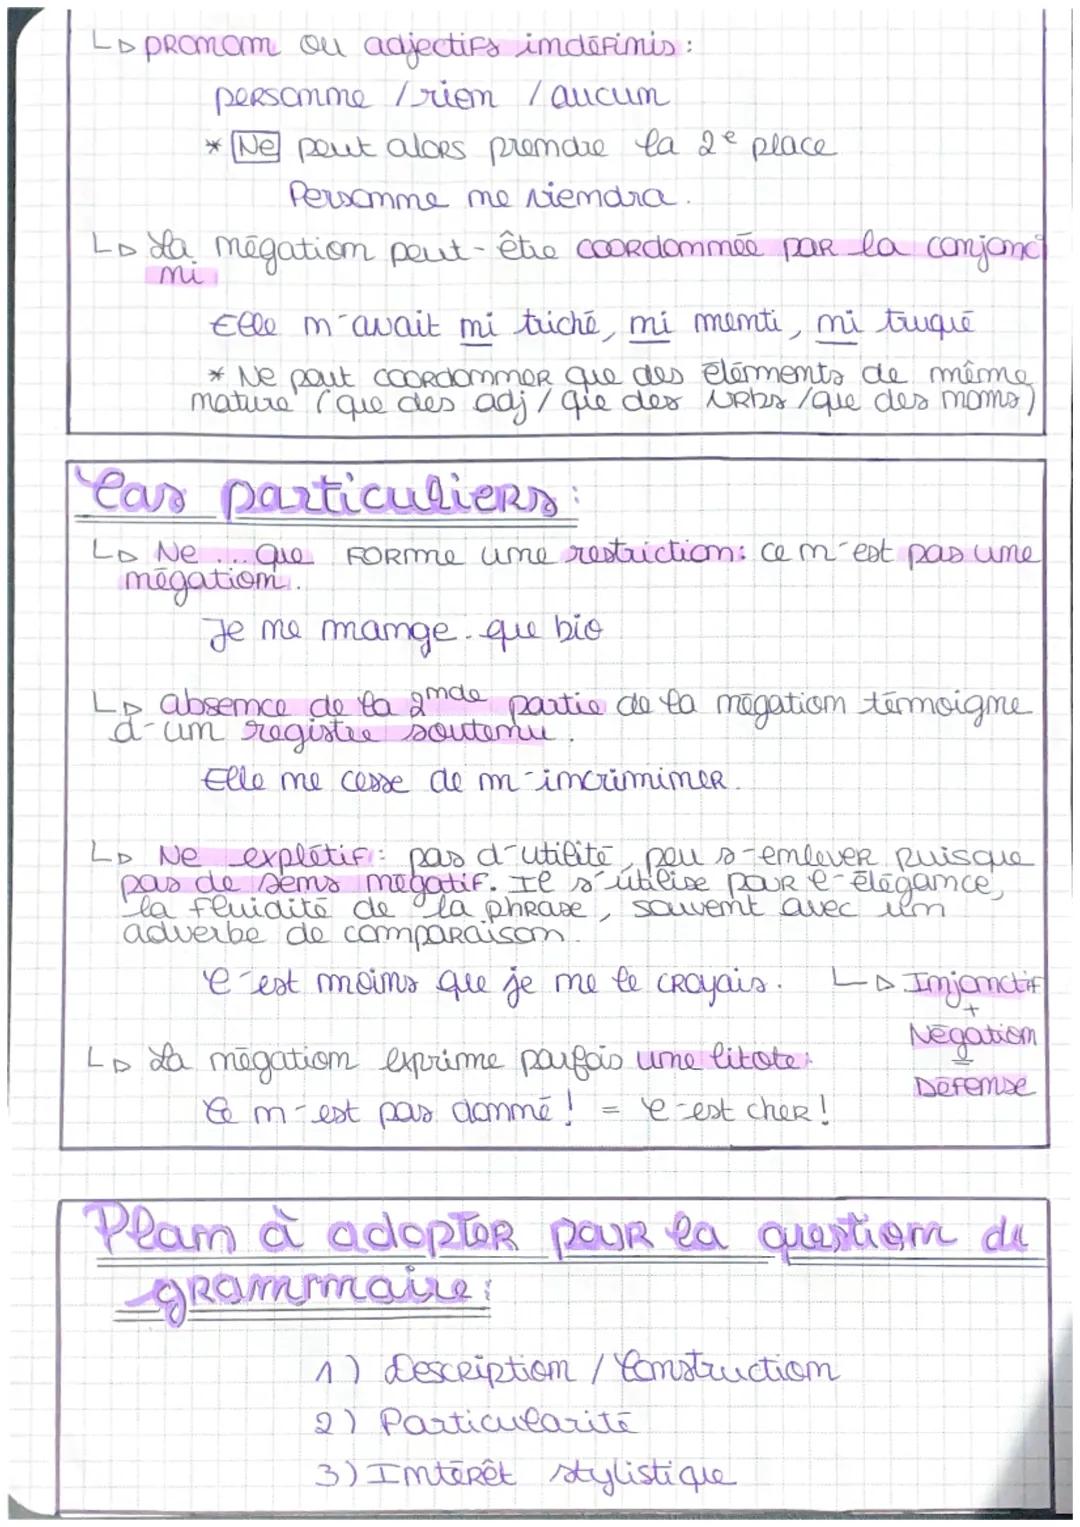 ↳ pronom ou adjectifs indéfinis :
personne / rien / aucun
* Ne peut alors prendre la 2e place
Personne ne viendra.
↳ La négation peut-être coordonnée par la conjonc
ni
Elle n'avait ni triché, ni menti, ni truqué
* Ne peut coordonner que des éléments de même
nature (que des adj / que des vrbs / que des noms)
Cas particuliers :
↳ Ne ... que forme une restriction : ce n'est pas une
négation.
Je ne mange que bio
↳ absence de la 2nde partie de la négation témoigne
d'un registre soutenu.
Elle ne cesse de m'incriminer.
↳ Ne explétif : pas d'utilité, peu s'enlever puisque
pas de sens négatif. Il s'utilise pour l'élégance,
la fluidité de la phrase, souvent avec un
adverbe de comparaison.
C'est moins que je ne le croyais. ↳ Injonctif
+
Négation
=
Défense
↳ La négation exprime parfois une litote :
Ce n'est pas donné ! = C'est cher !
Plan à adopter pour la question de
grammaire :
1) Description / Construction
2) Particularité
3) Intérêt stylistique